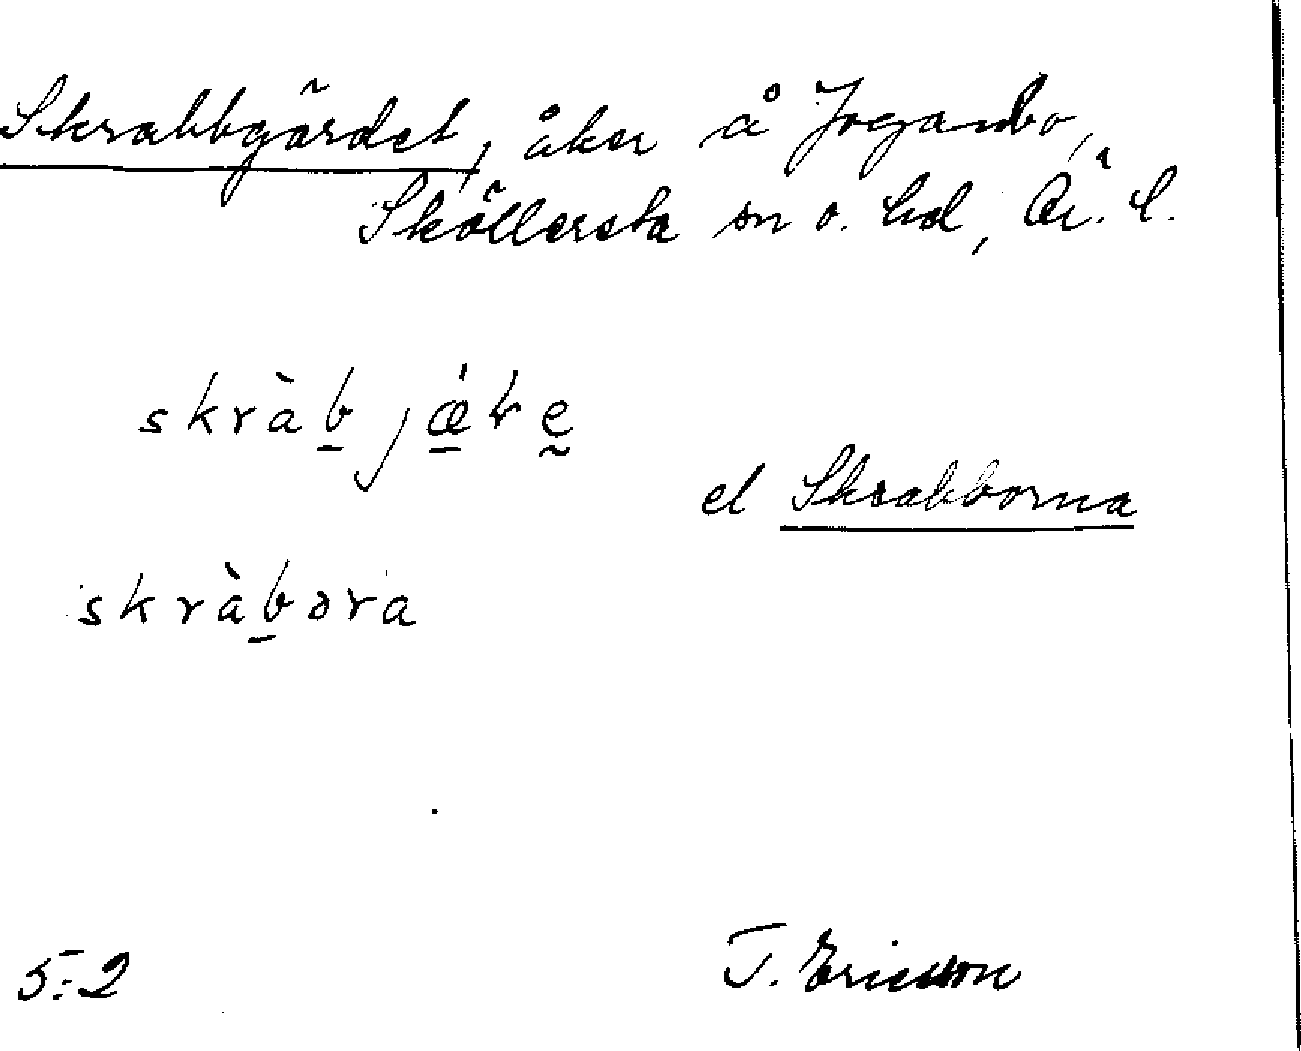 Skrabbgärdet, åker å Joganbo,
Sköllersta sn o. hd, Ör. l.
skràb jǽre̤
el Skrabborna
skràbɔra
5:2
T. Ericsson